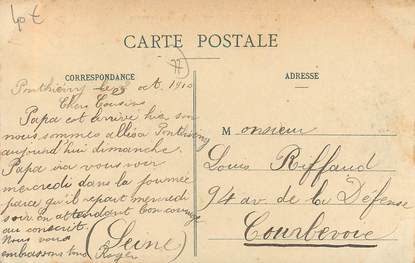 40 €
CARTE POSTALE
CORRESPONDANCE
ADRESSE
77
Ponthierry le oct 1910
Chers Cousins
Papa est arrivé hier soir
nous sommes allés a Ponthierry
aujourd'hui dimanche.
Papa ira vous voir
mercredi dans la journée
parce qu'il repart mercredi
soir on attendant bon courage
au conscrit.
Nous vous
embrassons tous
Roger
(Seine)
Monsieur
Louis Riffaud
94 av. de la Défense
Courbevoie